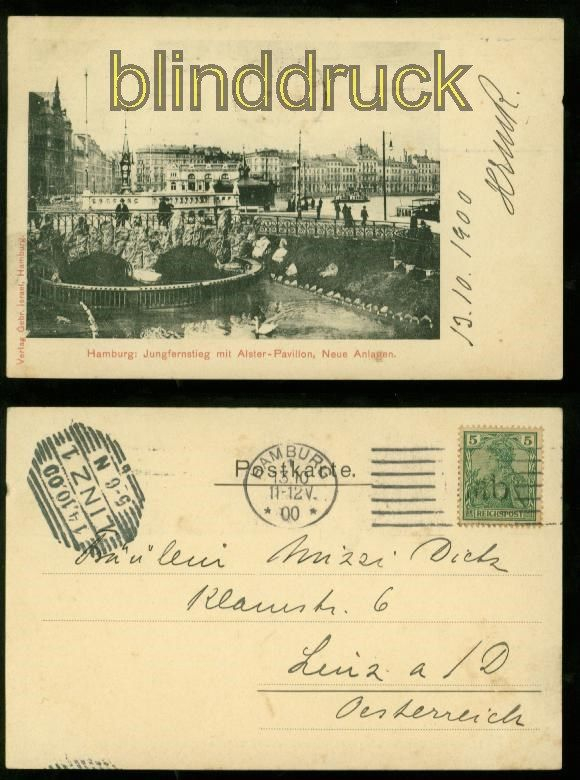 blinddruck
13.10.1900
Verlag Gebr. Israel, Hamburg.
Hamburg: Jungfernstieg mit Alster-Pavillon, Neue Anlagen.
LINZ 1
14.10.00
5-6 N
HAMBURG
1
13.10
11-12V.
* 00 *
Postkarte.
5 5
REICHSPOST
Fräulein Mizzi Dietz
Klamstr. 6
Linz a/D
Oesterreich